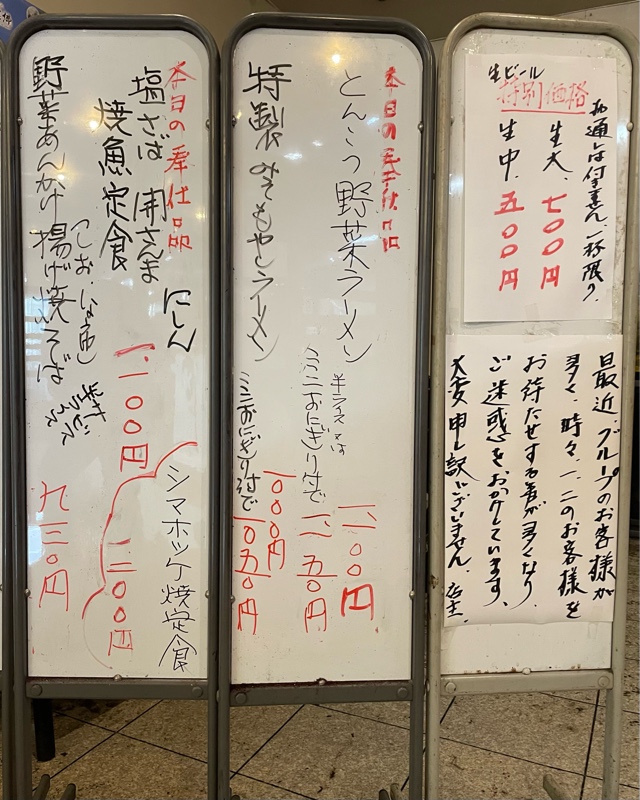 本日の奉仕品
塩さば 開さんま にしん
焼魚定食
一、一〇〇円
シマホッケ焼定食
一二〇〇円
野菜あんかけ揚げ焼そば
九三〇円
本日の奉仕品
とんこつ野菜ラーメン
一、一〇〇円
半ライス又は
ミニおにぎり付で
一、一五〇円
特製みそもやしラーメン
一〇〇〇円
ミニおにぎり付で
一〇五〇円
生ビール
特別価格
お通しは付ません、一杯限り
生大、七〇〇円
生中、五〇〇円
最近、グループのお客様が
多く、時々、一、二のお客様を
お待たせする事が多くなり、
ご迷惑をおかけしています。
大変申し訳ございません。店主